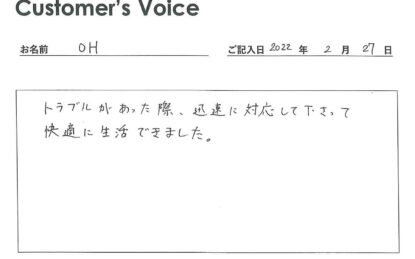 Customer's Voice
お名前 OH ご記入日 2022 年 2 月 27 日
トラブルがあった際、迅速に対応して下さって
快適に生活できました。